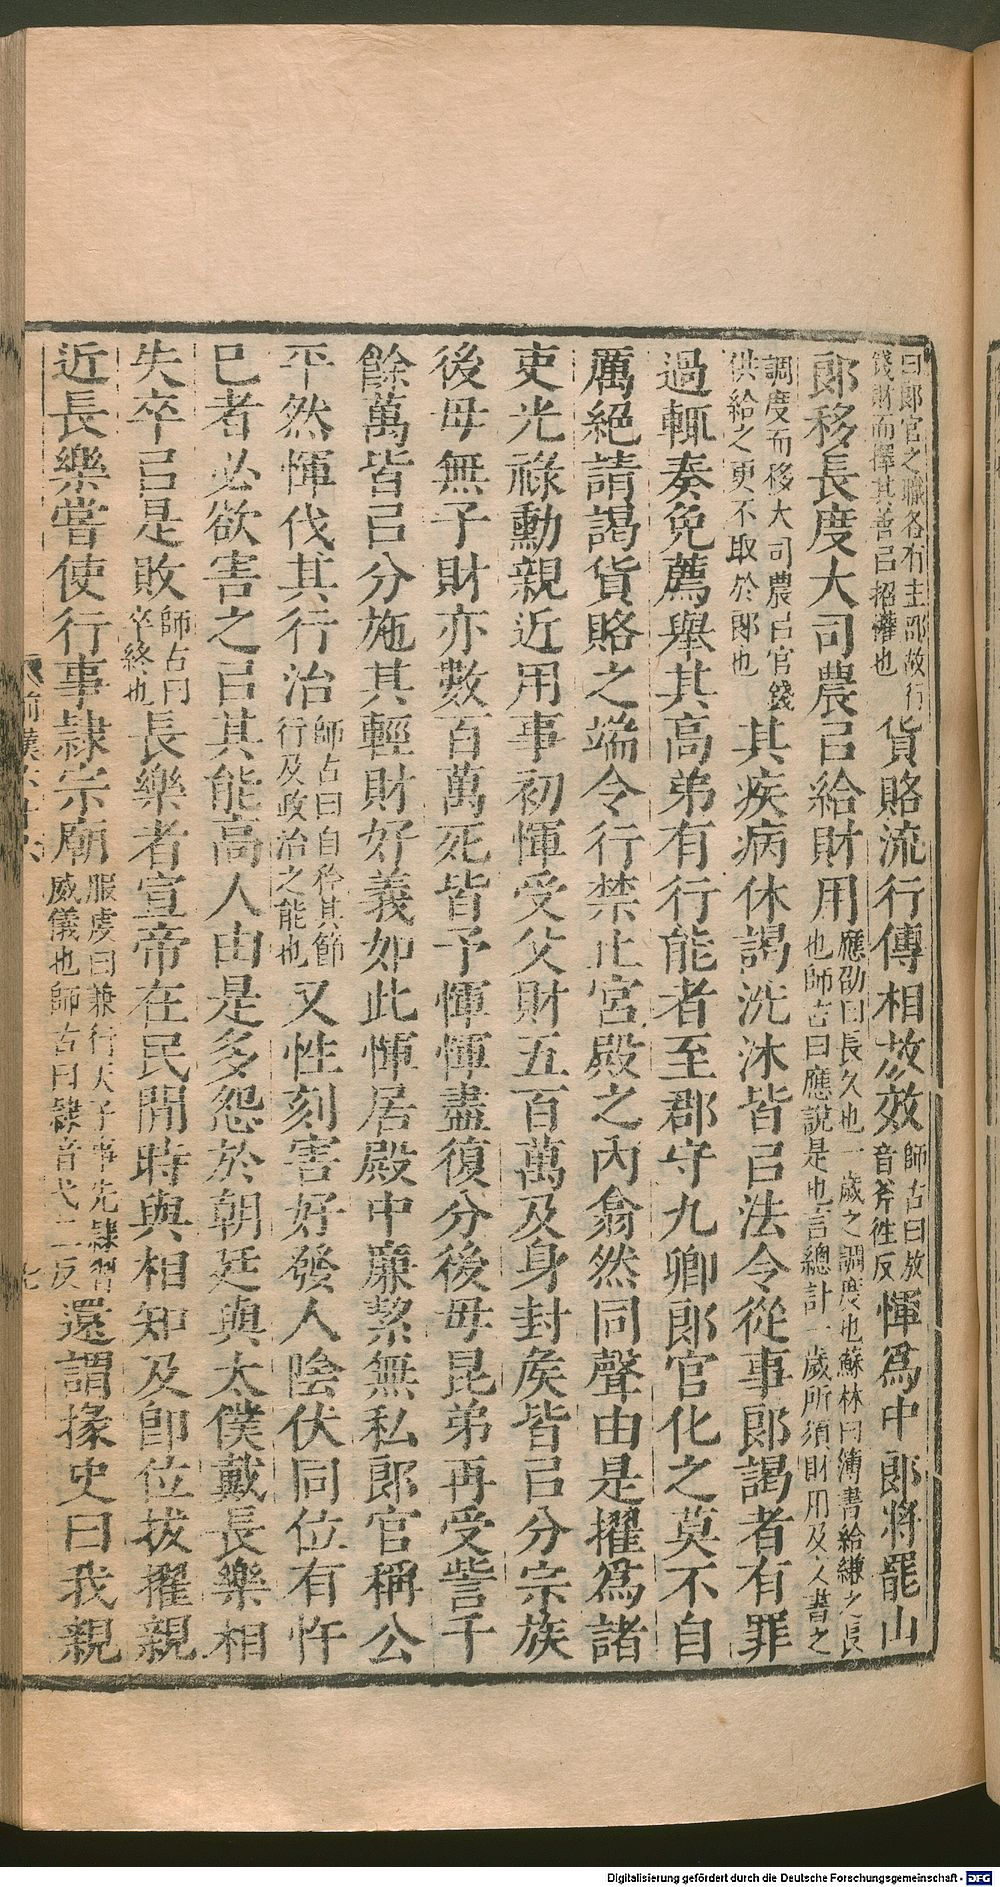 曰郎官之職各有主部故行錢財而擇其善㠯招權也貨賂流行傳相放效師古曰放音斧往反惲爲中郎將罷山
郎移長度大司農㠯給財用應劭曰長久也一歲之調度也蘇林曰簿書給縑之長也師古曰應說是也言總計一歲所須財用及文書之
調度而移大司農㠯官錢供給之更不取於郎也其疾病休謁洗沐皆㠯法令從事郎謁者有罪
過輒奏免薦舉其高弟有行能者至郡守九卿郎官化之莫不自
厲絕請謁貨賂之端令行禁止宮殿之內翕然同聲由是擢爲諸
吏光祿勳親近用事初惲受父財五百萬及身封矦皆㠯分宗族
後母無子財亦數百萬死皆予惲惲盡復分後母昆弟再受訾千
餘萬皆㠯分施其輕財好義如此惲居殿中廉絜無私郎官稱公
平然惲伐其行治師古曰自矜其節行及政治之能也又性刻害好發人陰伏同位有忤
已者必欲害之㠯其能高人由是多怨於朝廷與太僕戴長樂相
失卒㠯是敗師古曰卒終也長樂者宣帝在民閒時與相知及卽位拔擢親
近長樂嘗使行事隸宗廟服虔曰兼行天子事先隸習威儀也師古曰隸音弋二反還謂掾史曰我親
七
Digitalisierung gefördert durch die Deutsche Forschungsgemeinschaft - DFG